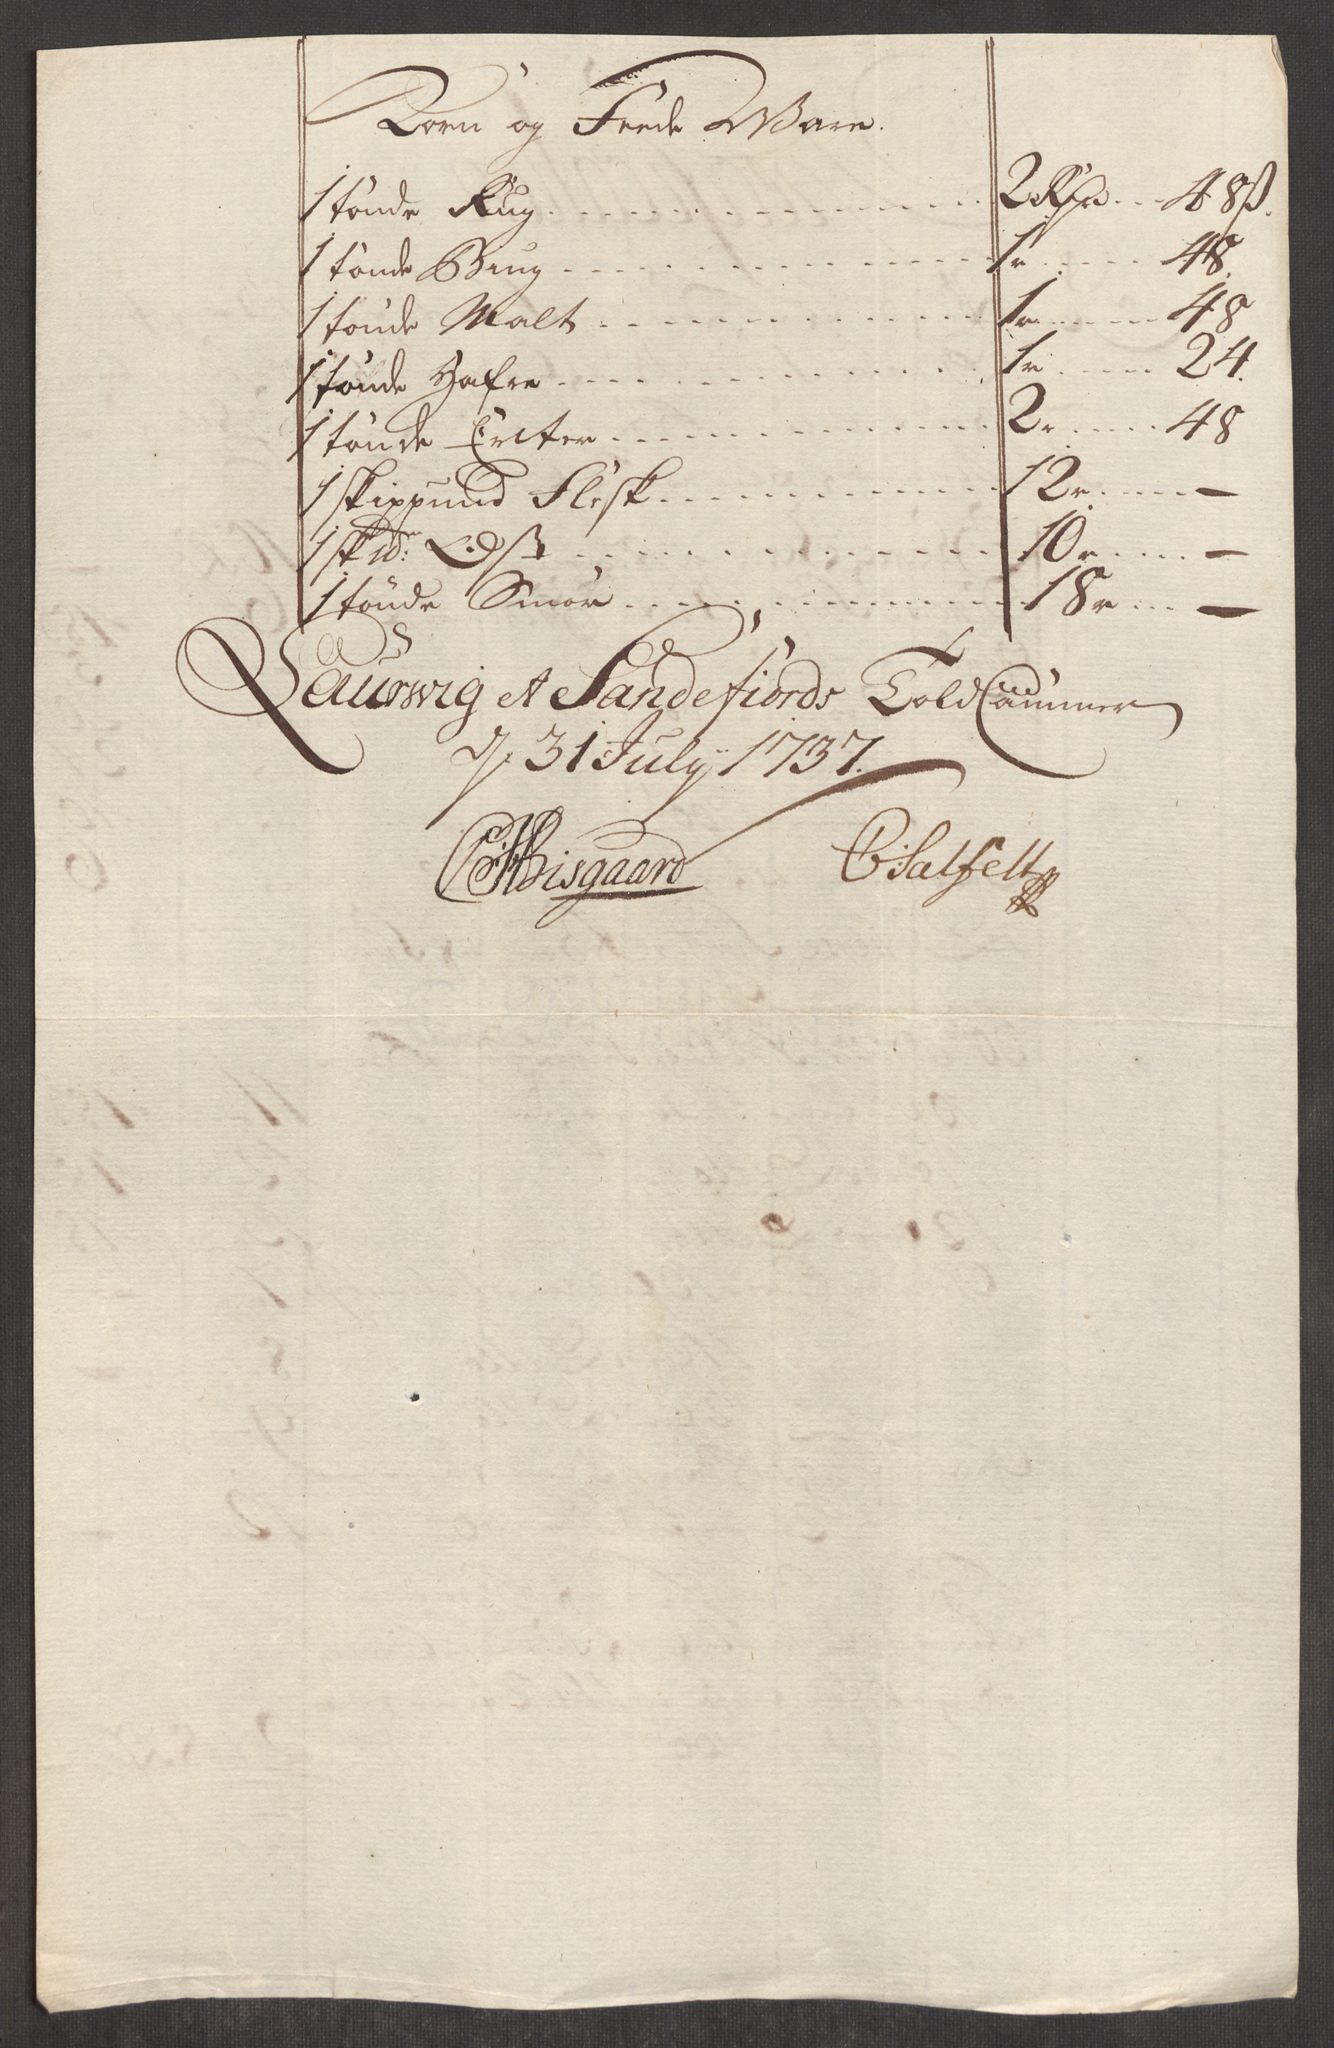 Korn og Feede Ware.
1 tønde Rug 2 Rdr 48 ß.
1 tønde Biug 1r 48
1 tønde Malt 1r 48
1 tønde Hafre 1r 24.
1 tønde Erter 2r 48
1 skippund Flesk 12r —
1 skpd: 10r —
1 tønde Smør 18r —
Laurwig et Sandefiords Told Cammer
d 31 July 1737.
Wisgaard C Salfelt